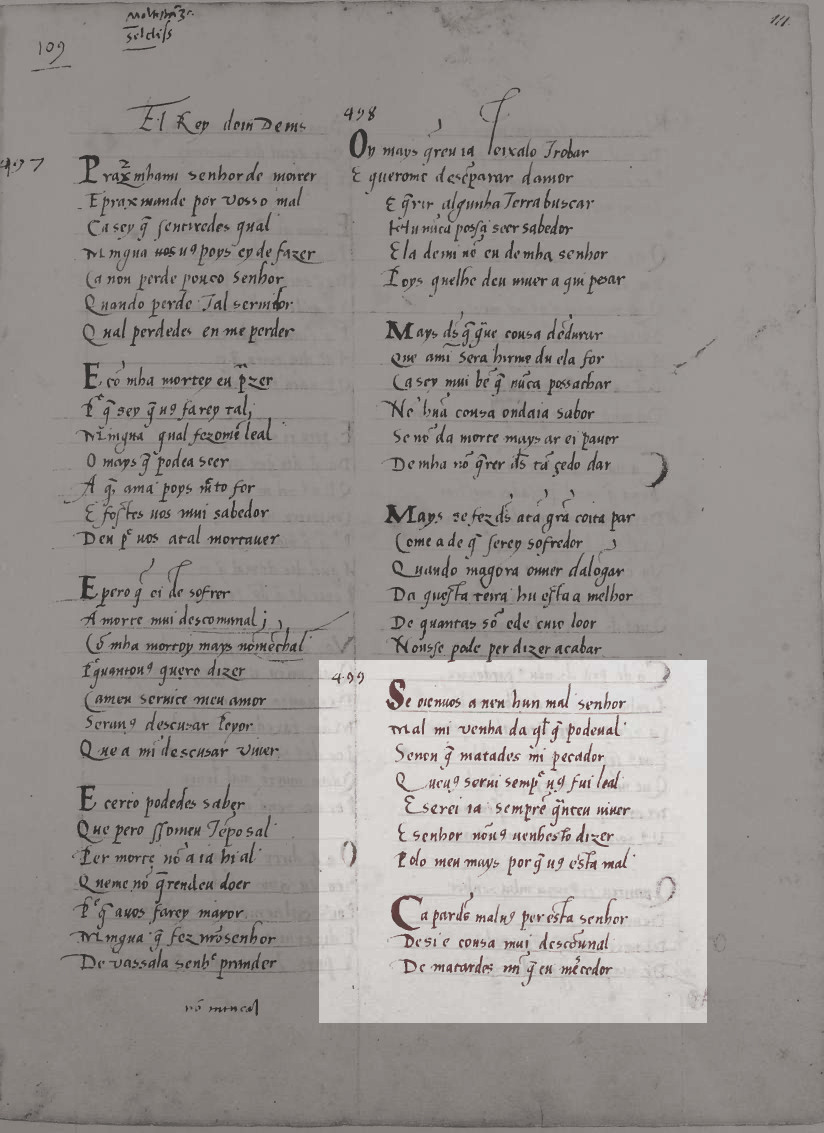 109
111
El Rey dom Denis
497
Prazmhami senhor de moirer
E praxmande por vosso mal
Ca sey q̃ sentiredes qual
Mingua uos us poys ey de fazer
Ca non perde pouco senhor
Quando perde Tal seruidor
Qual perdedes en me perder
E cõ mha mortey eu p̃zer
P q̃ sey q̃ us farey tal
Mingua qual fezome leal
O mays q̃ podea seer
A q̃ ama poys m̃to for
E fostes uos mui sabedor
Deu p uos atal mortauer
E pero q̃ ei de sofrer
A morte mui descomunal
Cõ mha mortoy mays nõmechal
P quantous quero dizer
Cameu seruice meu amor
Seraus descusar peyor
Que a mi descusar viuer
E certo podedes saber
Que pero ssomeu Tẽpo sal
Per morte nõ a ia hi al
Queme nõ q̃rendeu doer
P q̃ auos farey mayor
Mingua q̃ fez nr̃osenhor
De vassala senh prender
498
Oy mays q̃reu ia leixalo Trobar
E querome desẽparar damor
E q̃rir algunha Terra buscar
Hu nũca possa seer sabedor
Ela demi nẽ eu de mha senhor
Poys quelhe deu uiuer a qui pesar
Mays ds q̃ g̃ue cousa dẽdurar
Que ami sera hirme du ela for
Ca sey mui bẽ q̃ nũca possachar
Ne hũa cousa ondaia sabor
Se nõ da morte mays ar ei pauor
De mha nõ q̃rer ds tã çedo dar
Mays se fez ds atã grã coita par
Come a de q̃ serey sofredor
Quando magora ouuer dalõgar
Da questa terra hu esta a melhor
De quantas sõ ede cuio loor
Nonsse pode per dizer acabar
499
Se oienuos a nen hun mal senhor
Mal mi venha da ql q̃ podeual
Senon q̃ matades mi pecador
Queus serui semp us fui leal
E serei ia sempre q̃nteu uiuer
E senhor nõus uenhesto dizer
Polo meu mays por q̃ us esta mal
Ca pards malus per esta senhor
Desi e cousa mui descõunal
De matardes mi q̃ eu mẽcedor